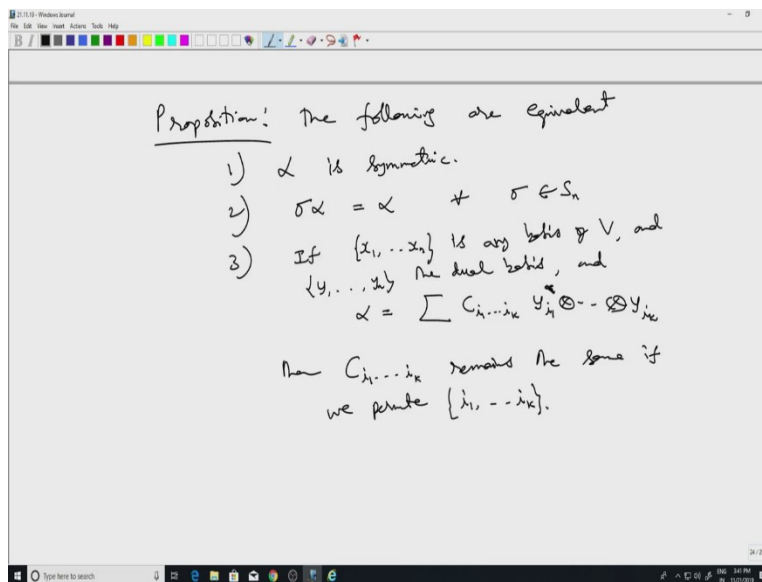 21.11.19 - Windows Journal
File Edit View Insert Actions Tools Help
Proposition: The following are equivalent
1) α is symmetric.
2) σα = α ∀ σ ∈ Sₙ
3) If {x₁, .. xₙ} is any basis of V, and
{y₁, . . , yₙ} the dual basis, and
α = ∑ C_{i₁...iₖ} y_{i₁} ⊗ - - ⊗ y_{iₖ}
Then C_{i₁...iₖ} remains the same if
we permute {i₁, - - iₖ}.
24 / 2
Type here to search
ENG 3:41 PM
IN 11/21/2019